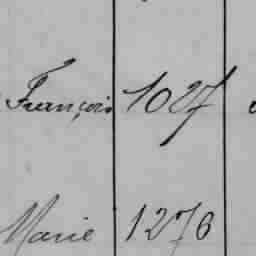 François 1027
Marie 1276